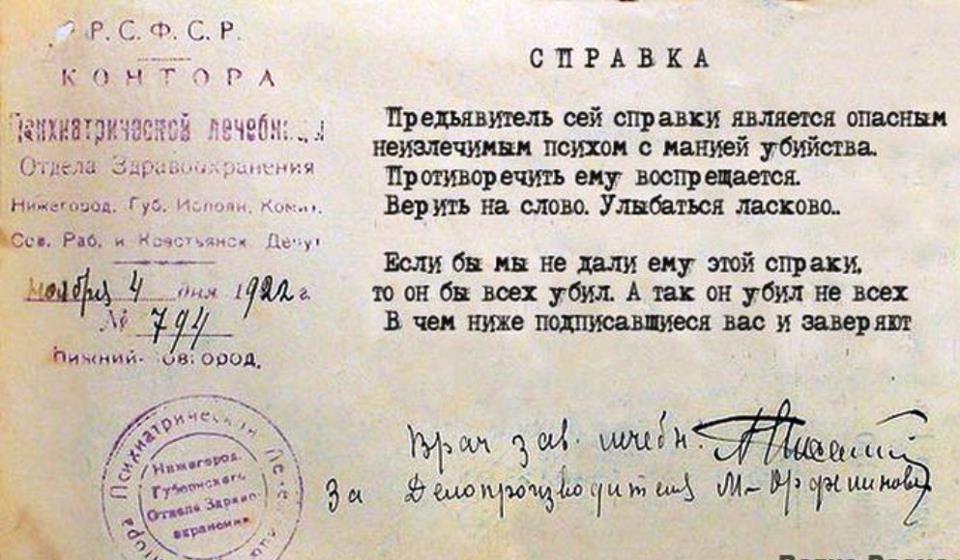 Р.С.Ф.С.Р.
КОНТОРА
Психиатрической лечебницы
Отдела Здравоохранения
Нижегород. Губ. Исполн. Комит.
Сов. Раб. и Крестьянск. Депут
ноября 4 дня 1922 г.
№ 794
Нижний-Новгород.
СПРАВКА
Предьявитель сей справки является опасным
неизлечимым психом с манией убийства.
Противоречить ему воспрещается.
Верить на слово. Улыбаться ласково..
Если бы мы не дали ему этой справки,
то он бы всех убил. А так он убил не всех
В чем ниже подписавшиеся вас и заверяют
Врач зав. лечебн.
За Делопроизводителя
Психиатрической
Нижегород.
Губернского
Отдела Здраво-
охранения